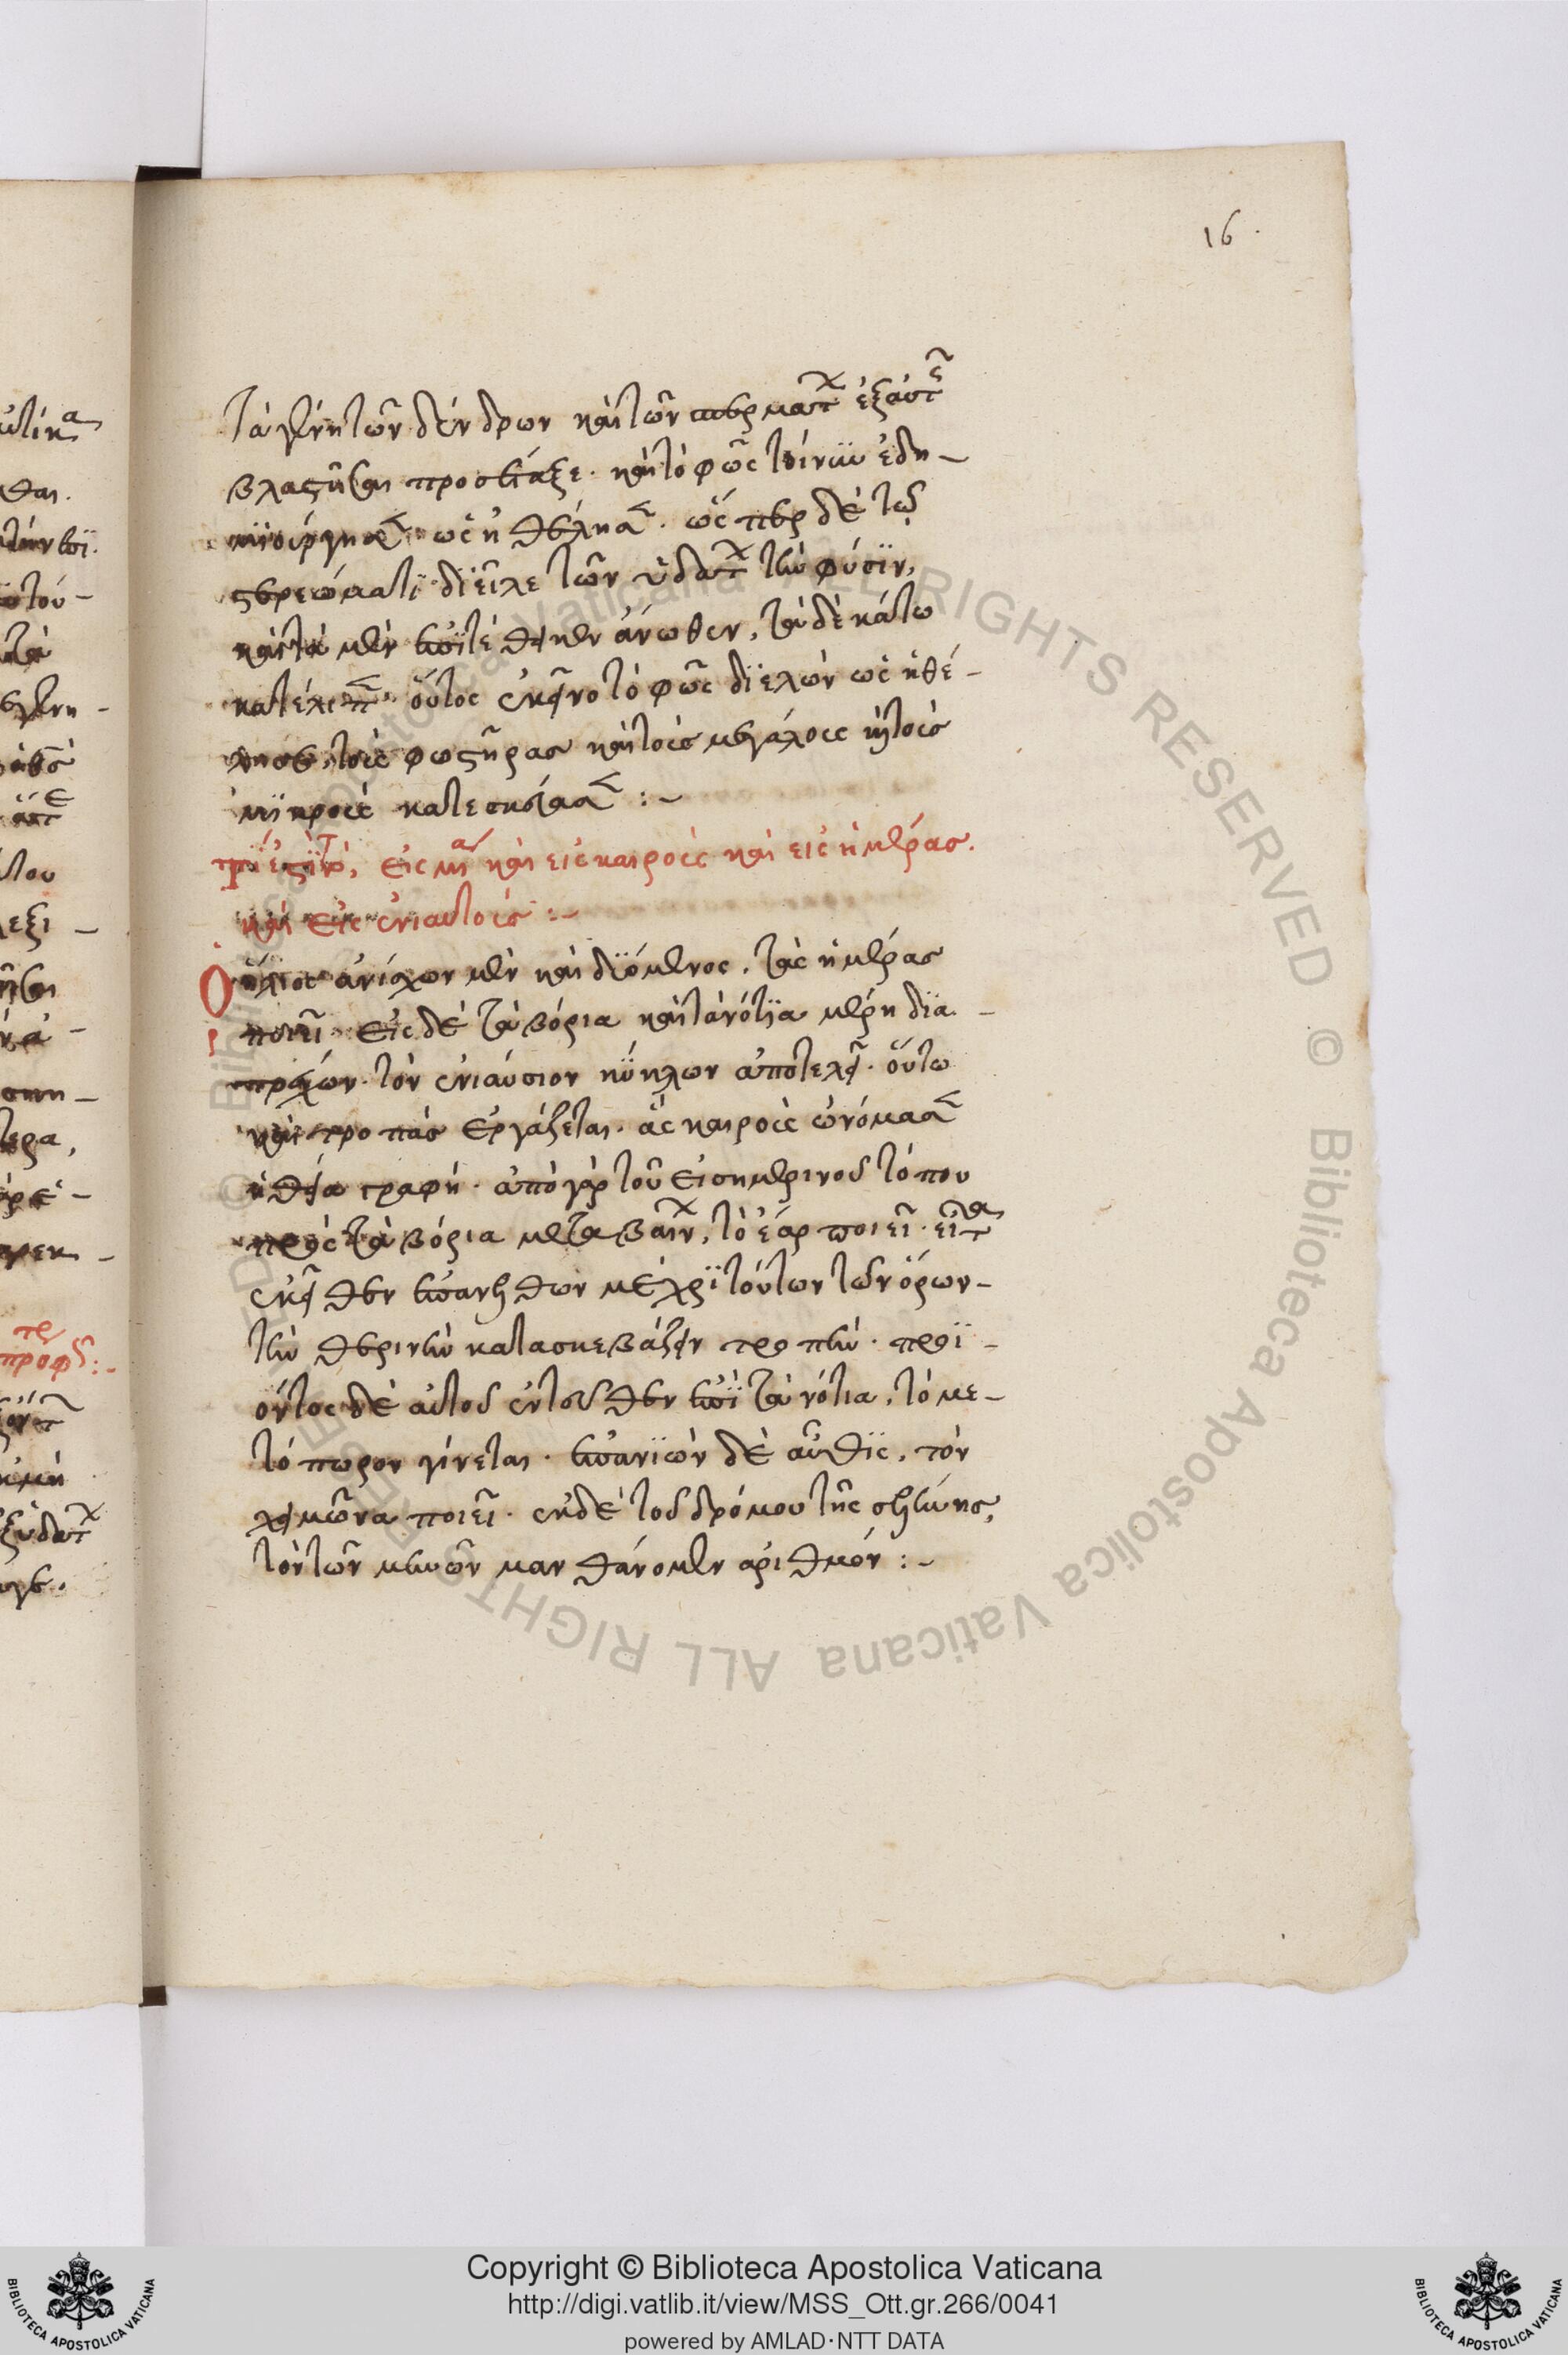 16.
τὰ γένη τῶν δένδρων καὶ τῶν σπερμάτ(ων) ἐξ αὐτῆς
βλαστῆσαι προσέταξε· καὶ τὸ φῶς τοίνυν ἐδη-
μϊούργησεν ὡς ἠθέλησεν· ὥσπερ δὲ τῷ
στερεώματϊ διεῖλε τῶν ὑδάτ(ων) τὴν φύσϊν,
καὶ τὰ μὲν ἐπϊτέθηκεν ἄνωθεν, τὰ δὲ κάτω
κατέλιπεν· οὕτος ἐκεῖνο τὸ φῶς διελὼν ὡς ἠθέ-
λησε, τοὺς φωστῆρας καὶ τοὺς μεγάλους κ(αὶ) τοὺς
μϊκροὺς κατεσκεύασεν :-
τί ἐστϊ τό, εἰς σημεῖα καὶ εἰς καιροὺς καὶ εἰς ἡμέρας.
καὶ εἰς ἐνιαυτούς :-
Ὁ ἥλιος ἀνίσχων μὲν καὶ δϋόμενος, τὰς ἡμέρας
ποιεῖ· εἰς δὲ τὰ βόρια καὶ τὰ νότϊα μέρη δϊα-
τρέχων τὸν ἐνιαύσιον κύκλων ἀποτελεῖ· οὕτω
καὶ τροπὰς ἐργάζεται· ἃς καιροὺς ὠνόμασεν
ἡ θεία γραφή· ἀπὸ γὰρ τοῦ εἰσημερινοῦ τόπου
πρὸς τὰ βόρια μεταβαίνων, τὸ ἔαρ ποιεῖ· εἶτα
ἐκεῖθεν ἐπανελθὼν μέχρϊ τούτων τῶν ὅρων-
τὴν θερινὴν κατασκεβάζειν τροπήν· προϊ-
όντος δὲ αὐτοῦ ἐντεῦθεν ἐπὶ τὰ νότια, τὸ με-
τόπωρον γίνεται· ἐπανϊὼν δὲ αὖθϊς, τὸν
χειμῶνα ποιεῖ· ἐκ δὲ τοῦ δρόμου τῆς σελήνης,
τὸν τῶν μηνῶν μανθάνομεν ἀριθμόν :-
Copyright © Biblioteca Apostolica Vaticana
http://digi.vatlib.it/view/MSS_Ott.gr.266/0041
powered by AMLAD·NTT DATA
BIBLIOTECA APOSTOLICA VATICANA
BIBLIOTECA APOSTOLICA VATICANA